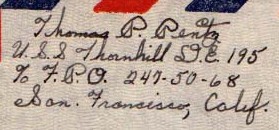 Thomas P. Pentz
U.S.S Thornhill D.E. 195
% F.P.O. 247-50-68
San. Francisco, Calif.